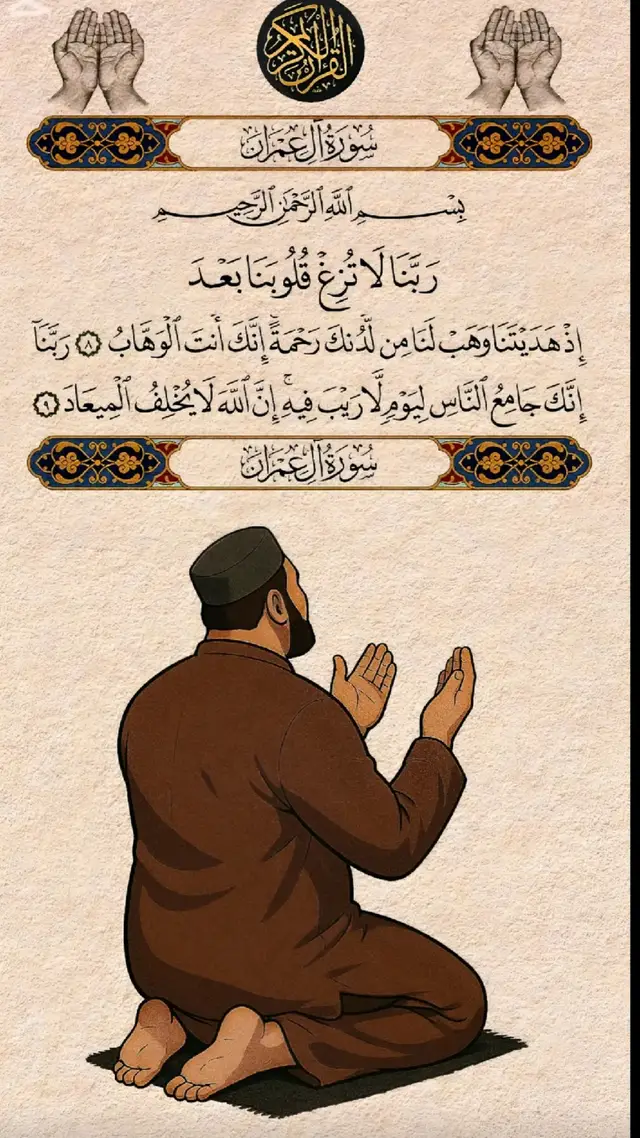 القرآن الكريم
سُورَةُ آلِ عِمْرَانَ
بِسْمِ ٱللَّهِ ٱلرَّحْمَٰنِ ٱلرَّحِيمِ
رَبَّنَا لَا تُزِغْ قُلُوبَنَا بَعْدَ
إِذْ هَدَيْتَنَا وَهَبْ لَنَا مِن لَّدُنكَ رَحْمَةً ۚ إِنَّكَ أَنتَ ٱلْوَهَّابُ ٨ رَبَّنَآ
إِنَّكَ جَامِعُ ٱلنَّاسِ لِيَوْمٍ لَّا رَيْبَ فِيهِ ۚ إِنَّ ٱللَّهَ لَا يُخْلِفُ ٱلْمِيعَادَ ٩
سُورَةُ آلِ عِمْرَانَ